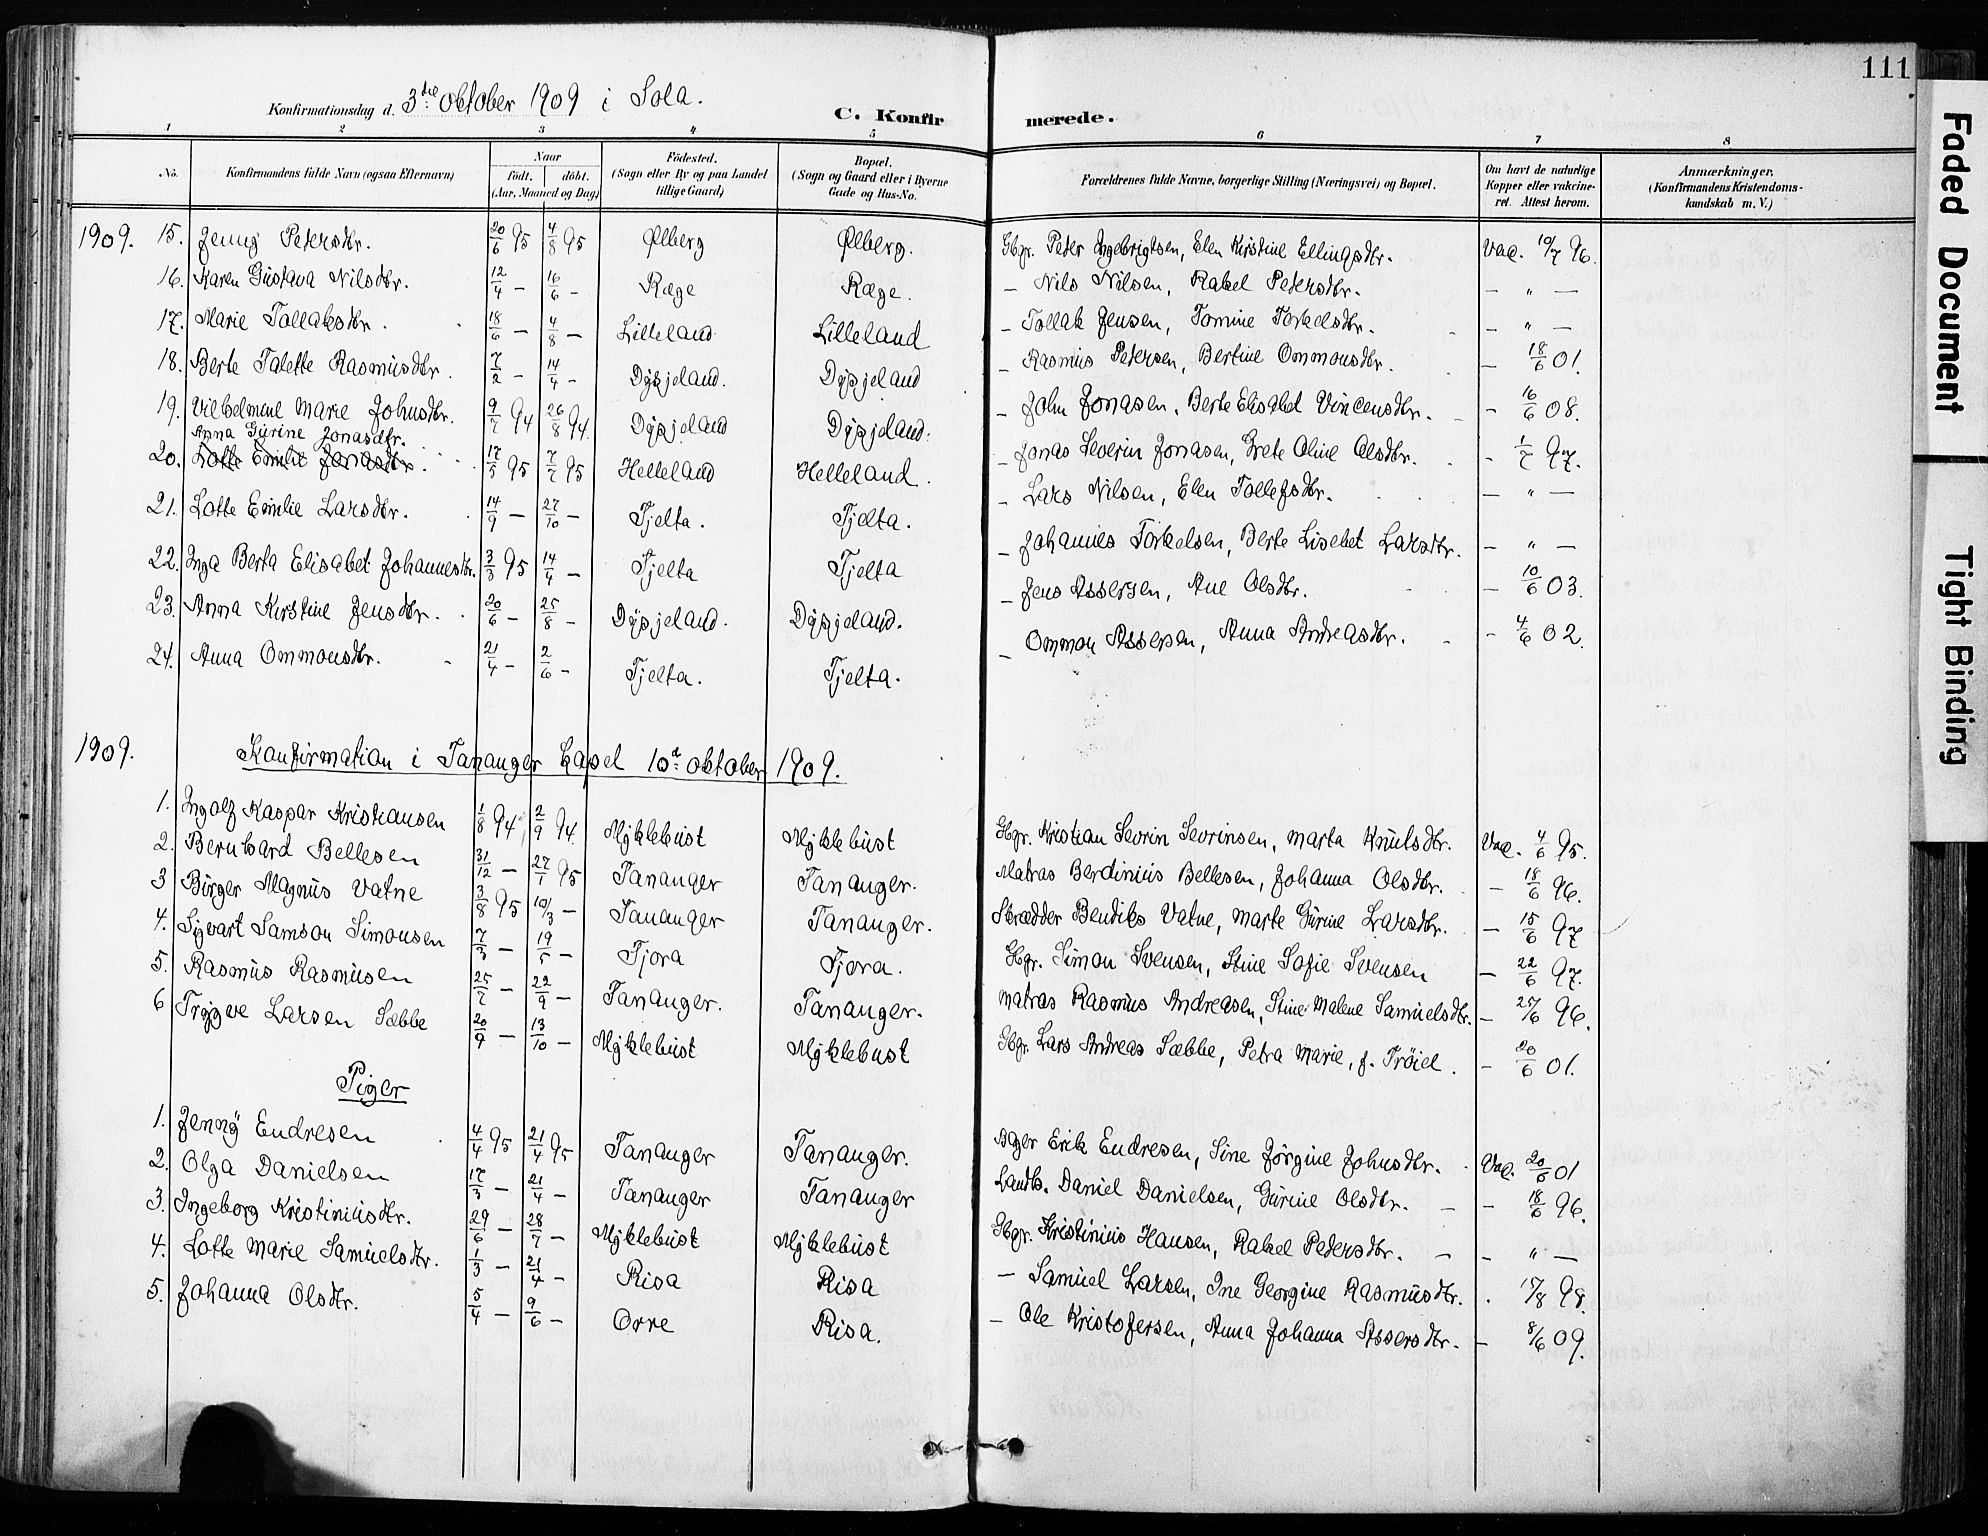 111
Faded Document
Tight Binding
Konfirmationsdag d. 3die oktober 1909 i Sola.
C. Konfirmerede.
1 2 3 4 5 6 7 8
No. | Konfirmandens fulde Navn (ogsaa Efternavn) | Naar født. døbt. (Aar, Maaned og Dag) | Fødested. (Sogn eller By og paa Landet tillige Gaard) | Bopæl. (Sogn og Gaard eller i Byerne Gade og Hus-No. | Forældrenes fulde Navne, borgerlige Stilling (Næringsvei) og Bopæl. | Om havt de naturlige Kopper eller vakcineret. Attest herom. | Anmærkninger. (Konfirmandens Kristendomskundskab m. V.)
1909. 15. Jenny Petersdtr. 20/6 95 4/8 95 Ølberg Ølberg. Gbgr. Peter Ingebrigtsen, Elen Kirstine Ellingsdtr. Vac. 10/7 96.
16. Karen Gustava Nilsdtr. 12/4 — 16/6 — Ræge Ræge. — Nils Nilsen, Rakel Petersdtr. — " —
17. Marie Tollaksdtr. 18/6 — 4/8 — Lilleland Lilleland — Tollak Jensen, Tomine Torkelsdtr. — " —
18. Berte Talette Rasmusdtr. 7/2 — 14/4 — Dysjeland. Dysjeland — Rasmus Petersen, Bertine Ommonsdtr. — 18/6 01.
19. Vilhelmine Marie Johnsdtr. 9/7 94 26/8 94. Dysjeland Dysjeland. — John Jonasen, Berte Elisabet Vincensdtr. — 16/6 08.
Anna Gurine Jonasdtr.
20. Lotte Emilie Jonasdtr. 17/5 95 7/7 95 Helleland Helleland. — Jonas Severin Jonasen, Grete Oline Olsdtr. — 1/7 97.
21. Lotte Emilie Larsdtr. 14/9 — 27/10 — Tjelta. Tjelta. — Lars Nilsen, Elen Tollefsdtr. — " —
22. Inga Berta Elisabet Johannesdtr. 3/3 95 14/4 — Tjelta Tjelta — Johannes Torkelsen, Berte Lisebet Larsdtr. — " —
23. Anna Kirstine Jensdtr. 20/6 — 25/8 — Dysjeland. Dysjeland. — Jens Assersen, Ane Olsdtr. — 10/6 03.
24. Anna Ommonsdtr. 21/4 — 2/6 — Tjelta. Tjelta. — Ommon Assersen, Anna Andreasdtr. — 4/6 02.
1909. Konfirmation i Tananger Kapel 10de oktober 1909.
1. Ingolf Kaspar Kristiansen 1/8 94 2/9 94. Myklebust Myklebust Gbgr. Kristian Sevrin Sevrinsen, Marta Knutsdtr. Vac. 4/6 95.
2. Bernhard Bellesen 31/12 — 27/1 95 Tananger Tananger. Matros Berdinius Bellesen, Johanna Olsdtr. — 18/6 96.
3 Birger Magnus Vatne 3/8 95 10/3 — Tananger Tananger. Skrædder Bendiks Vatne, Marte Gurine Larsdtr. — 15/6 97
4. Sigvart Samson Simonsen 7/3 — 19/5 — Tjora Tjora. Gbgr. Simon Svensen, Stine Sofie Svensen — 22/6 97.
5. Rasmus Rasmussen 25/7 — 22/9 — Tananger. Tananger. Matros Rasmus Andreasen, Stine Malene Samuelsdtr. — 25/6 96.
6 Trygve Larsen Sæbbe 20/9 — 13/10 — Myklebust Myklebust Gbgr. Lars Andreas Sæbbe, Petra Marie, f. Trøiel. — 20/6 01.
Piger
1. Jenny Endresen 4/4 95 21/4 95 Tananger Tananger. Erik Endresen, Sine Jørgine Johnsdtr. Vac. 20/6 01
2. Olga Danielsen 17/3 — 21/4 — Tananger Tananger Landh. Daniel Danielsen, Gurine Olsdtr. — 18/6 96.
3. Ingeborg Kristiniusdtr. 29/6 — 28/7 — Myklebust Myklebust Gbgr. Kristinius Hansen, Rakel Pedersdtr. — " —
4. Lotte Marie Samuelsdtr. 1/3 — 21/4 — Risa Risa — Samuel Larsen, Ine Georgine Rasmusdtr. 15/8 98.
5. Johanna Olsdtr. 5/4 — 9/6 — Orre Risa. — Ole Kristofersen, Anna Johanna Assersdtr. — 8/6 09.